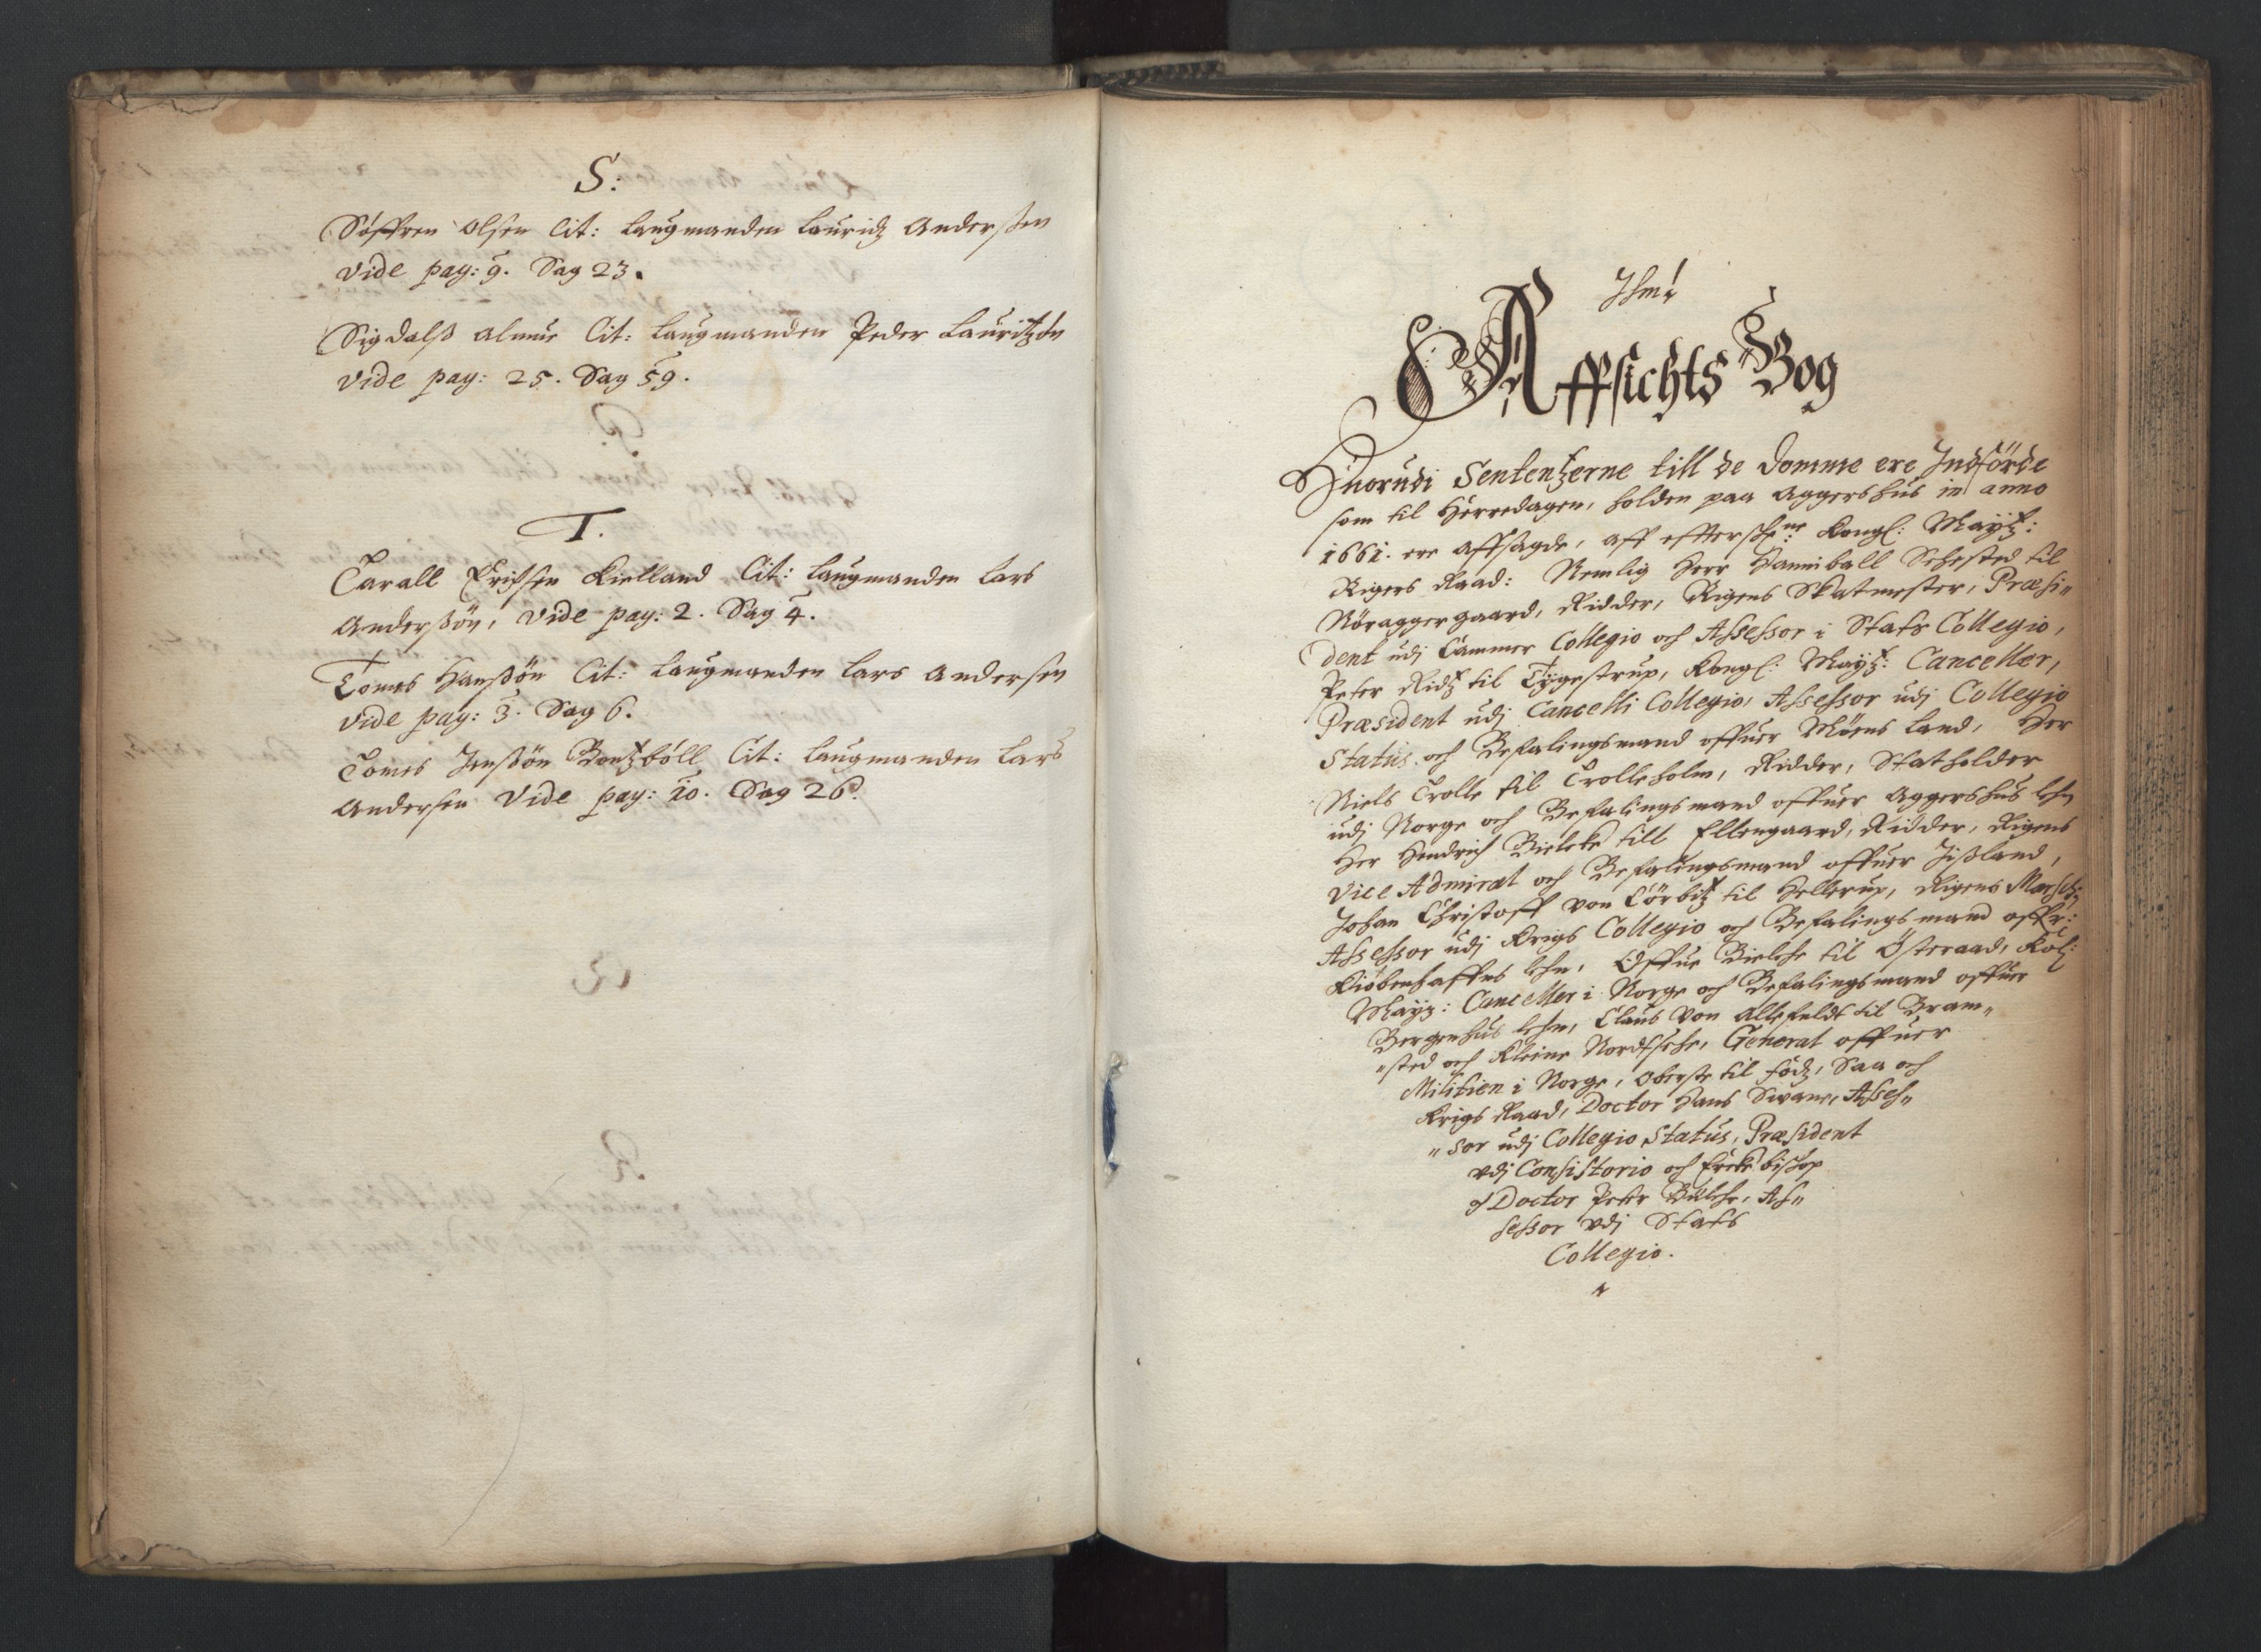 S:
Söffren Olsen Cit: Laugmanden Lauridz Anderßen
Vide pag: 9. Sag 23.
Sigdalß Almue Cit: Laugmanden Peder Lauritzön
Vide pag: 25. Sag 59.
T.
Tarall Erichsen Kielland Cit: Laugmanden Lars
Anderßön, Vide pag: 2. Sag 4.
Tomes Hanßön Cit: Laugmanden Lars Andersen
Vide pag: 3. Sag 6.
Tomes Jenßön Cit: Laugmanden Lars
Andersen Vide pag: 10. Sag 26.
Affsichts Bog
Huorudi Sententzerne till de Domme ere Indförde
som til Herredagen, holden paa Aggershus in anno
1661. ere affsagde, aff effterschne: Kongl: Maytz:
Rigers Raad: Nemlig Herr Hanniball Sehested til
Nöraggergaard, Ridder, Rigens Skatmester, Præsi„
dent udj Cammer Collegio och Assessor i Stats Collegio,
Peter Ridtz til Tygestrup, Kongl: Maytz: Canceller,
Præsident udj Cancelli Collegio, Assessor udj Collegio
Status och Befalingsmand offuer Möens Land, Her
Niels Trolle til Trolleholm, Ridder, Statholder
udj Norge och Befalingsmand offuer Aggershus lehn
Her Hendrich Bielcke till Ellengaard, Ridder, Rigens
Vice Admiral och Befalingsmand offuer Jißland,
Johan Christoff von Cörbitz til Hellerup, Rigens Marsch:
Assessor udj Krigs Collegio och Befalingsmand offr:
Kiöbenhaffns lehn, Offue Bielche til Österaad, Kol:
Mayz: Canceller i Norge och Befalingsmand offuer
Bergenhus lehn, Claus Von Allefeldt til Bram„
„sted och Kleine Nordsehe, General offuer
Militien i Norge, Oberste til fodz, Saa och
Krigs Raad, Doctor Hans Swane, Asses„
„sor udj Collegio Status, Præsident
vdj Consistorio och Ercke bischop
oc Doctor Peter Bülche, As„
sessor vdj Stats
Collegio.